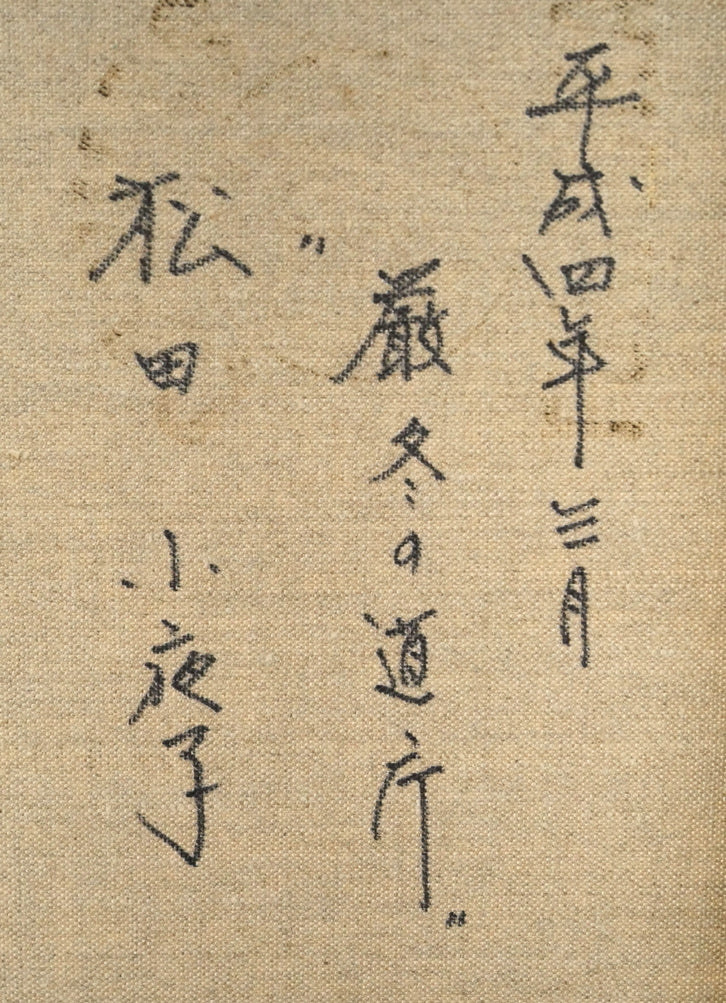 平成四年三月
"厳冬の道庁"
松田 小夜子